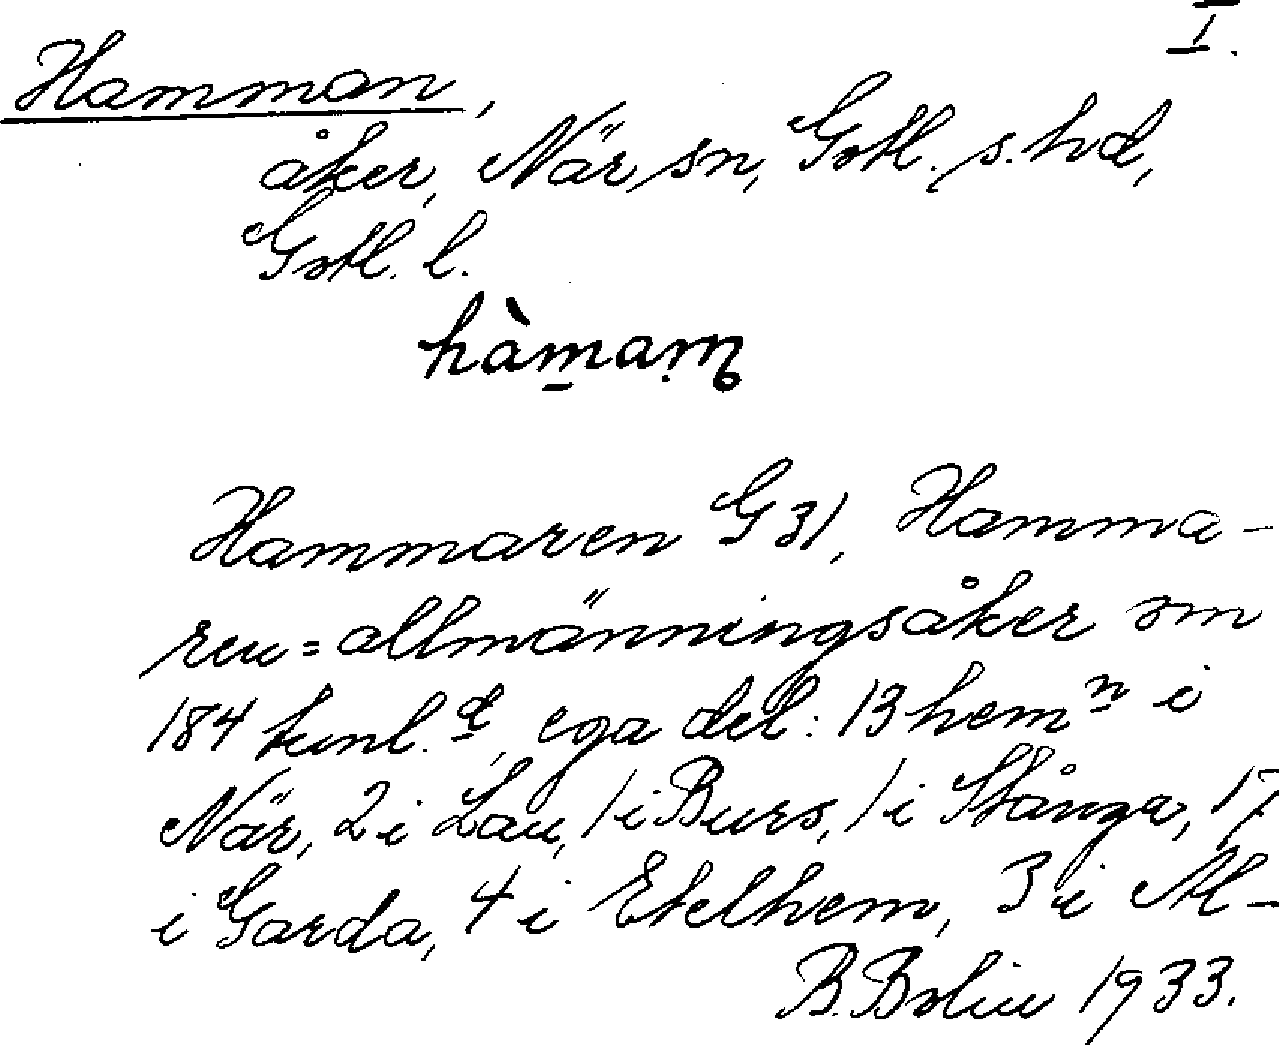 I.
Hamman,
åker, När sn, Gotl. s. hd,
Gotl. l.
hàmam̥
Hammaren G 31, Hamma-
ren = allmänningsåker om
184 kunl.d, ega del: 13 hem n i
När, 2 i Lau, 1 i Burs, 1 i Stånga, 17
i Garda, 4 i Etelhem, 3 i Al-
B. Bolin 1933.